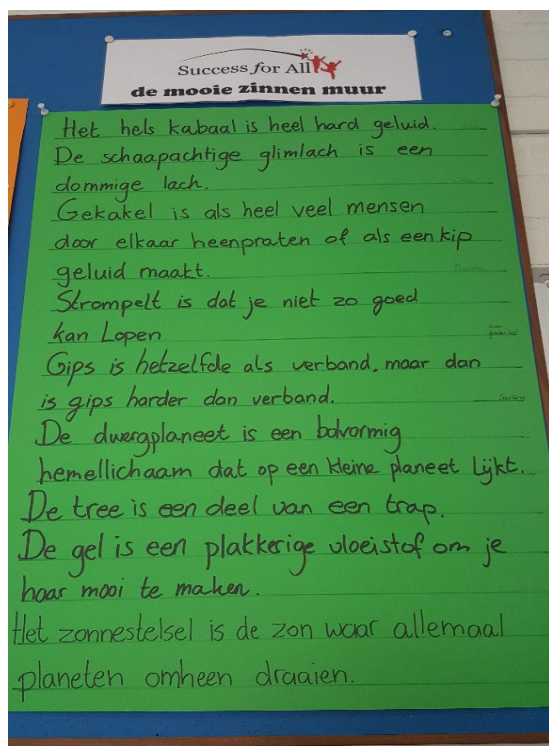 Success for All
de mooie zinnen muur
Het hels kabaal is heel hard geluid.
De schaapachtige glimlach is een
dommige lach.
Gekakel is als heel veel mensen
door elkaar heenpraten of als een kip
geluid maakt.
Strompelt is dat je niet zo goed
kan Lopen
Gips is hetzelfde als verband, maar dan
is gips harder dan verband.
De dwergplaneet is een bolvormig
hemellichaam dat op een kleine planeet lijkt.
De tree is een deel van een trap.
De gel is een plakkerige vloeistof om je
haar mooi te maken.
Het zonnestelsel is de zon waar allemaal
planeten omheen draaien.